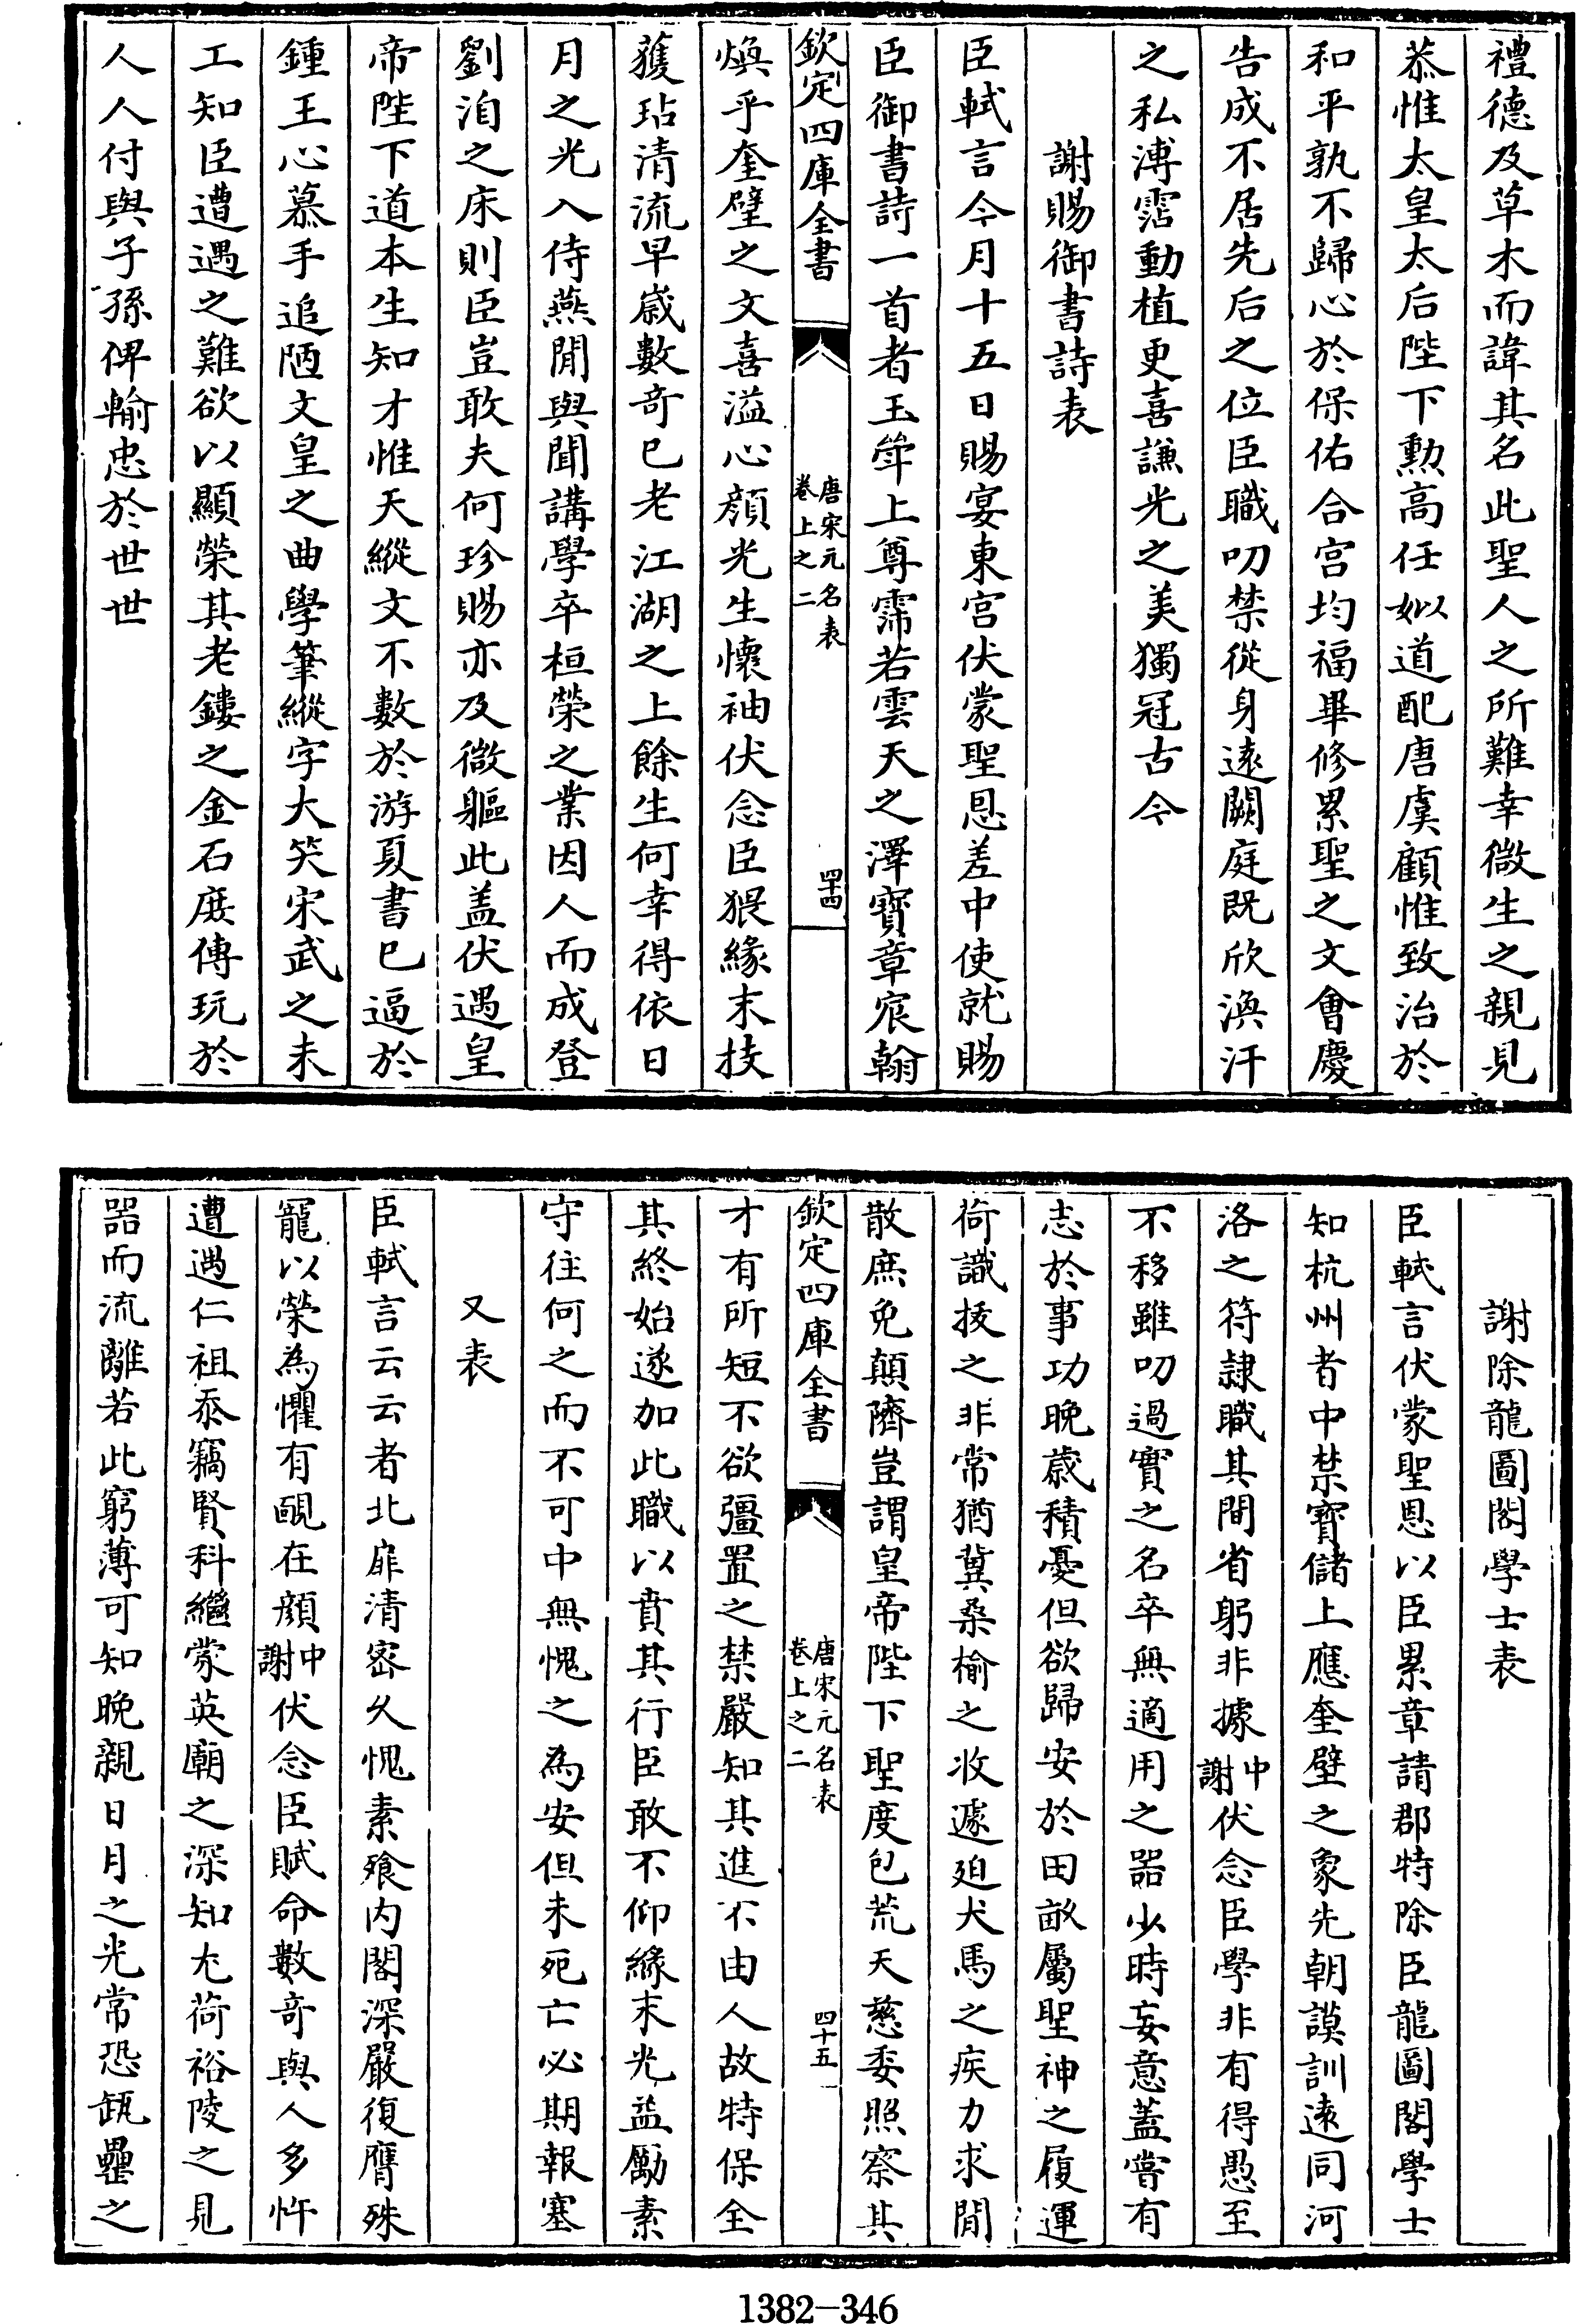 禮德及草木而諱其名此聖人之所難幸微生之親見
恭惟太皇太后陛下勲高任姒道配唐虞顧惟致治於
和平孰不歸心於保佑合宫均福畢修累聖之文會慶
告成不居先后之位臣職叨禁從身遠闕庭既欣渙汗
之私溥霑動植更喜謙光之美獨冠古今
謝賜御書詩表
臣軾言今月十五日賜宴東宫伏蒙聖恩差中使就賜
臣御書詩一首者玉斚上尊霈若雲天之澤寶章宸翰
欽定四庫全書
唐宋元名表
卷上之二
四十四
煥乎奎璧之文喜溢心顔光生懷袖伏念臣猥緣末技
獲玷清流早嵗數奇已老江湖之上餘生何幸得依日
月之光入侍燕閒與聞講學卒桓榮之業因人而成登
劉洎之床則臣豈敢夫何珍賜亦及微軀此盖伏遇皇
帝陛下道本生知才惟天縱文不數於游夏書已逼於
鍾王心慕手追陋文皇之曲學筆縱字大笑宋武之未
工知臣遭遇之難欲以顯榮其老鏤之金石庻傳玩於
人人付與子孫俾輸忠於世世
謝除龍圖閣學士表
臣軾言伏蒙聖恩以臣累章請郡特除臣龍圖閣學士
知杭州者中禁寶儲上應奎壁之象先朝謨訓逺同河
洛之符隷職其間省躬非據
中
謝
伏念臣學非有得愚至
不移雖叨過實之名卒無適用之器少時妄意蓋嘗有
志於事功晩歲積憂但欲歸安於田畝屬聖神之履運
荷識拔之非常猶冀桑榆之收遽廹犬馬之疾力求閒
散庶免顛隮豈謂皇帝陛下聖度包荒天慈委照察其
欽定四庫全書
唐宋元名表
卷上之二
四十五
才有所短不欲彊置之禁嚴知其進不由人故特保全
其終始遂加此職以賁其行臣敢不仰緣末光益勵素
守往何之而不可中無愧之為安但未死亡必期報塞
又表
臣軾言云云者北扉清宻久愧素飱内閣深嚴復膺殊
寵以榮為懼有靦在顔
中
謝
伏念臣賦命數奇與人多忤
遭遇仁祖忝竊賢科繼蒙英廟之深知尤荷裕陵之見
器而流離若此窮薄可知晩親日月之光常恐缾罍之
1382-346